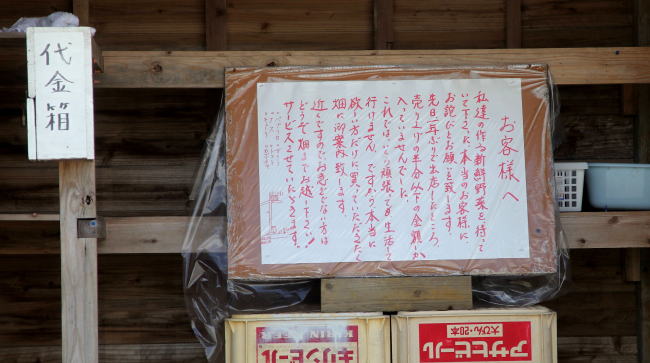 代金箱
お客様へ
私達の作る新鮮野菜を待って
いて下さった本当のお客様に
お詫びとお願いを致します。
先日一年ぶりで出店したところ
売り上りの半分以下の金額しか
入っていませんでした。
これでは、いくら頑張っても生活して
行けません。ですから本当に
欲しい方だけに買っていただきたく
畑に御案内致します。
近くですのでお急ぎでない方は
どうぞ畑までお越し下さい!
サービスさせていただきます。
KIRIN BEER
キリンビール
大びん・20本
アサヒビール